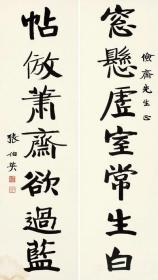 儉齋先生正
窓懸虛室常生白
帖倣蕭齋欲過藍
張伯英